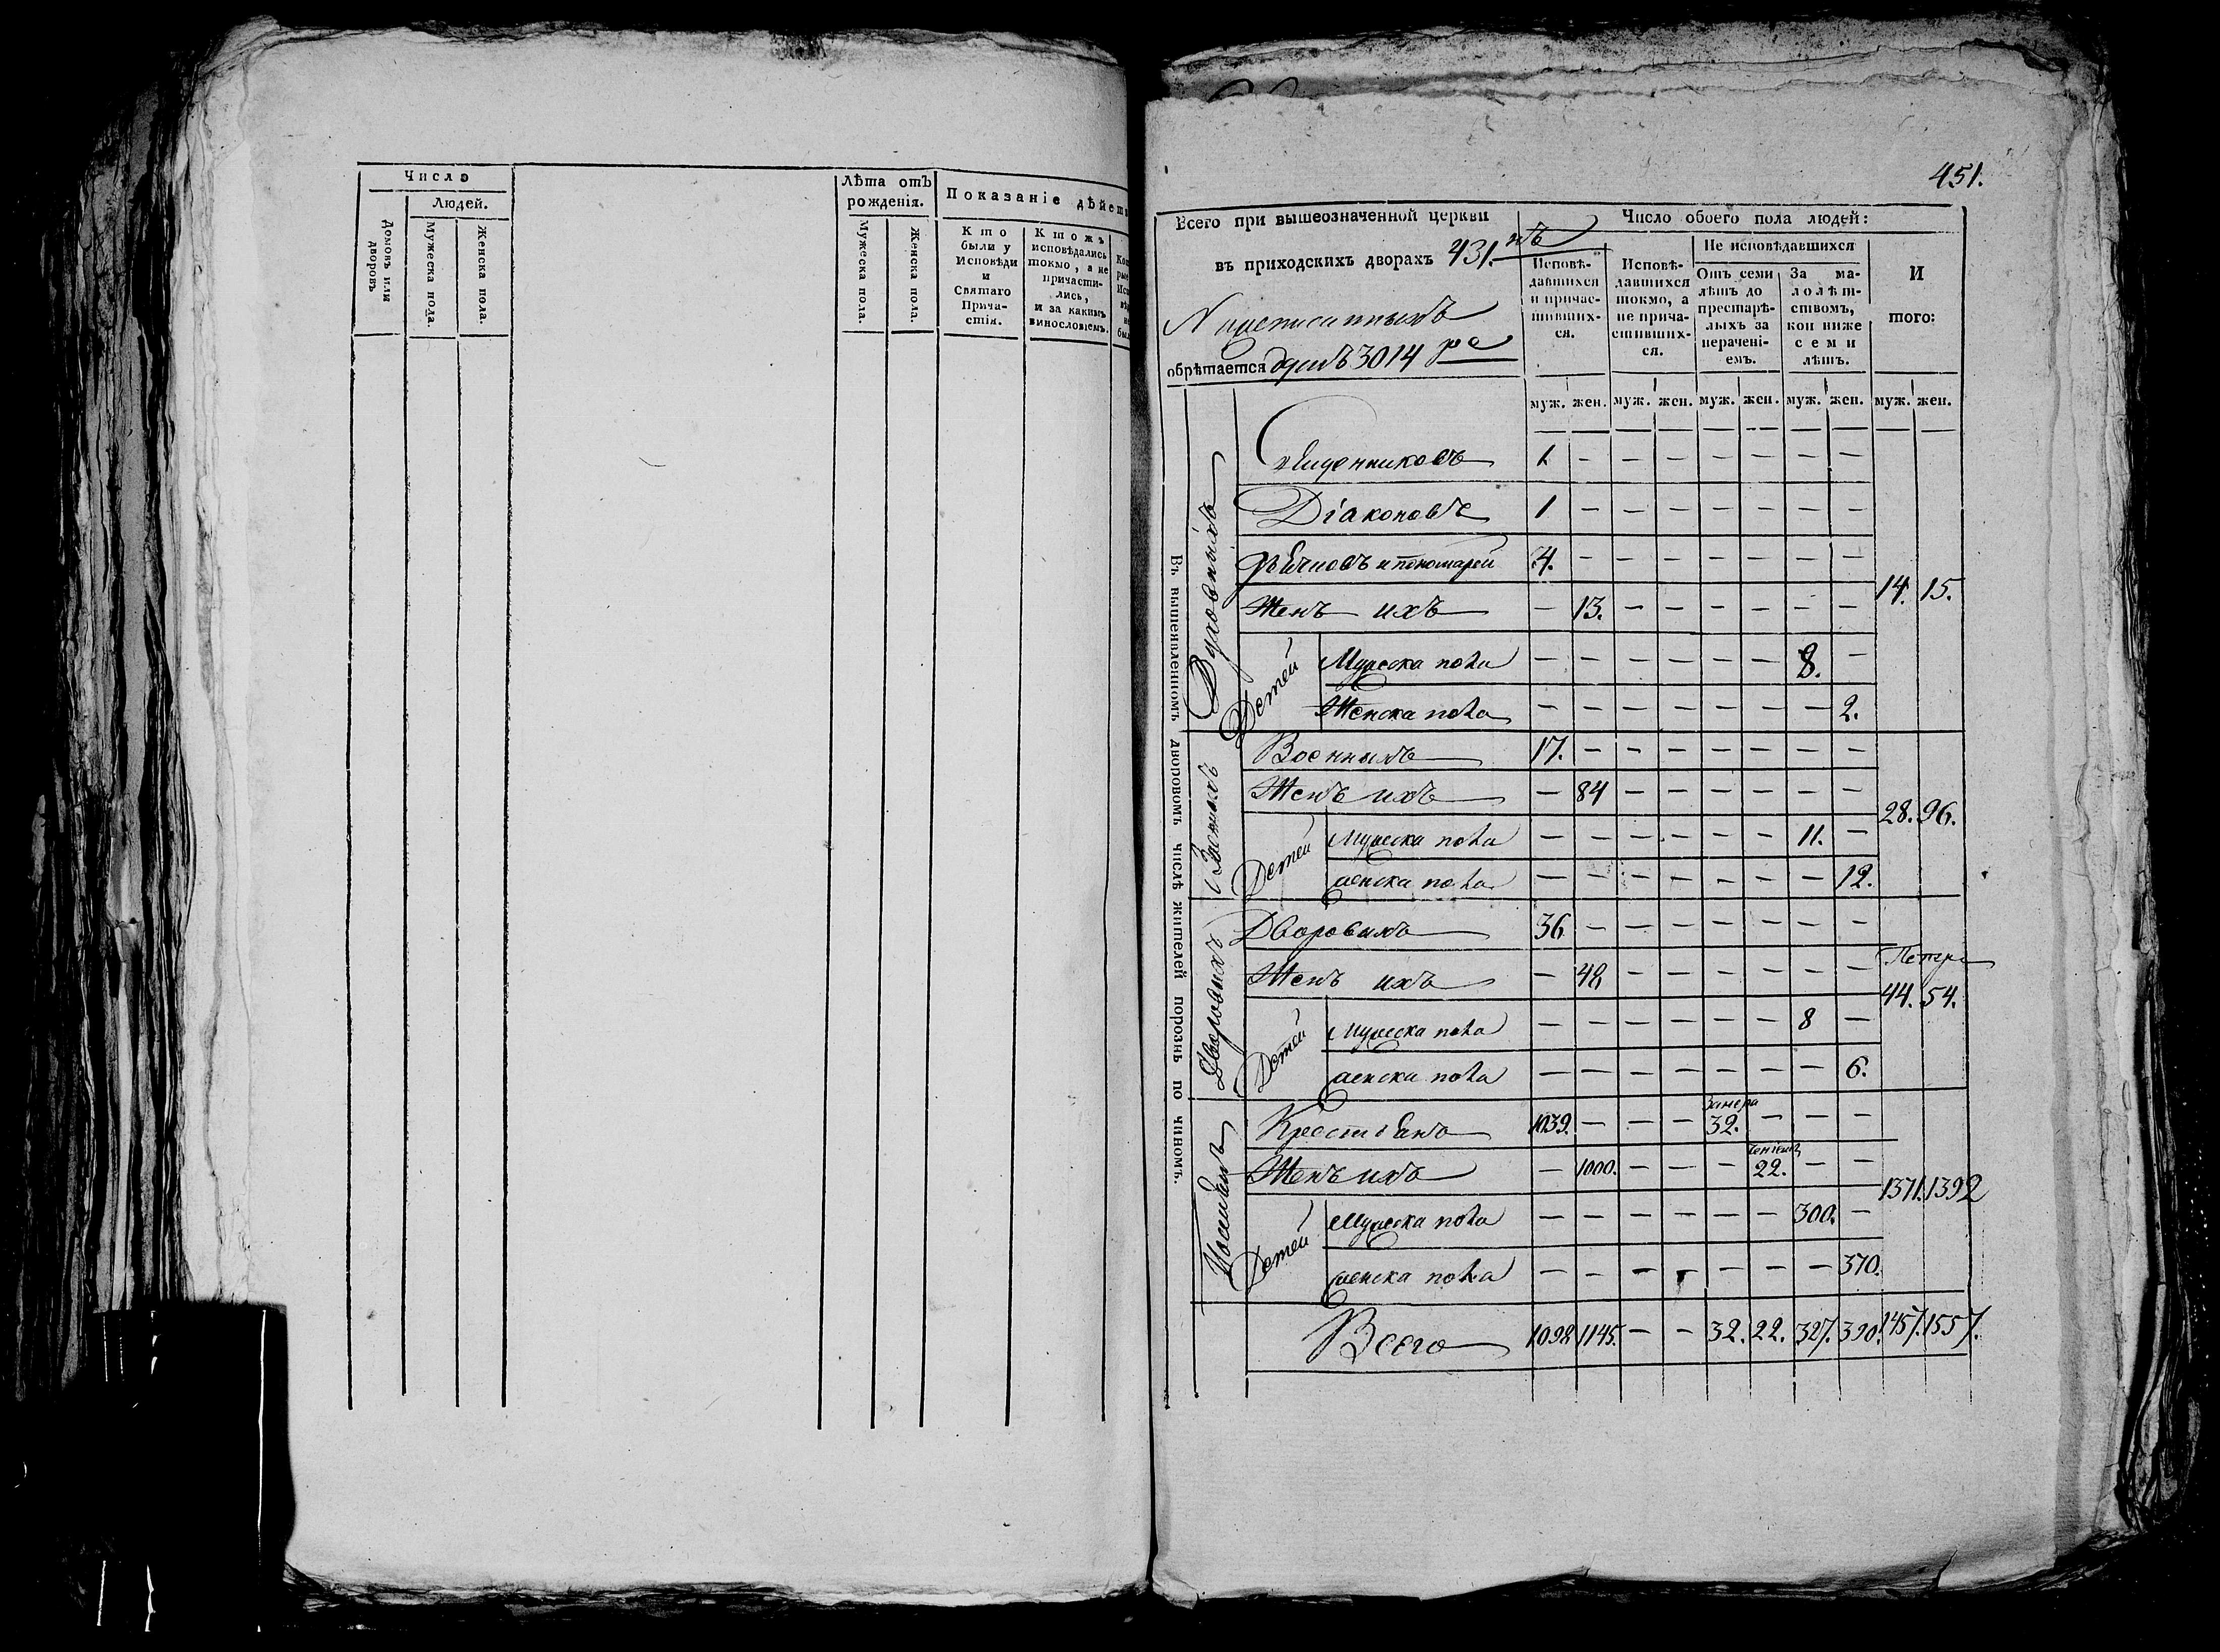 Число
Людей.
Домовъ или дворовъ
Мужеска пола.
Женска пола.
Лѣта отъ
рожденія.
Мужеска пола.
Женска пола.
Показаніе
Кто
были у
Исповѣди
и
Святаго
Прича-
стія.
Ктожъ
исповѣдались
токмо, а не
причасти-
лись,
и за какимъ
винословіемъ.
451.
Всего при вышеозначенной церкви
въ приходскихъ дворахъ 431.
обрѣтается душъ 3014
Число обоего пола людей:
Исповѣ-
давшихся
и причас-
тивших-
ся.
Исповѣ-
давшихся
токмо, а
не прича-
стивших-
ся.
Не исповѣдавшихся
Отъ семи
лѣтъ до
престарѣ-
лыхъ за
нерачені-
емъ.
За ма-
лолѣт-
ствомъ,
кои ниже
семи
лѣтъ.
И
того:
муж. жен. муж. жен. муж. жен. муж. жен. муж. жен.
Въ вышеявленномъ дворовомъ числѣ жителей порознь по чиномъ.
Духовныхъ
Священниковъ 1 — — — — — — —
Діаконовъ 1 — — — — — — —
и пономарей 4. — — — — — — —
Женъ ихъ — 13. — — — — — —
14. 15.
Детей
Мужеска пола — — — — — — 8. —
Женска пола — — — — — — — 2.
Военныхъ
Военныхъ 17. — — — — — — —
Женъ ихъ — 84 — — — — — —
28. 96.
Детей
Мужеска пола — — — — — — 11. —
женска пола — — — — — — — 12.
Дворовыхъ
Дворовыхъ 36 — — — — — — —
Женъ ихъ — 48 — — — — — —
44. 54.
Детей
Мужеска пола — — — — — — 8 —
женска пола — — — — — — — 6.
Крестьянъ 1039. — — — 32. — — —
Женъ ихъ — 1000. — — — 22. — —
1371. 1392
Детей
Мужеска пола — — — — — — 300. —
женска пола — — — — — — — 370.
Всего 1092 1145. — — 32. 22. 327. 390. 1457. 1557.